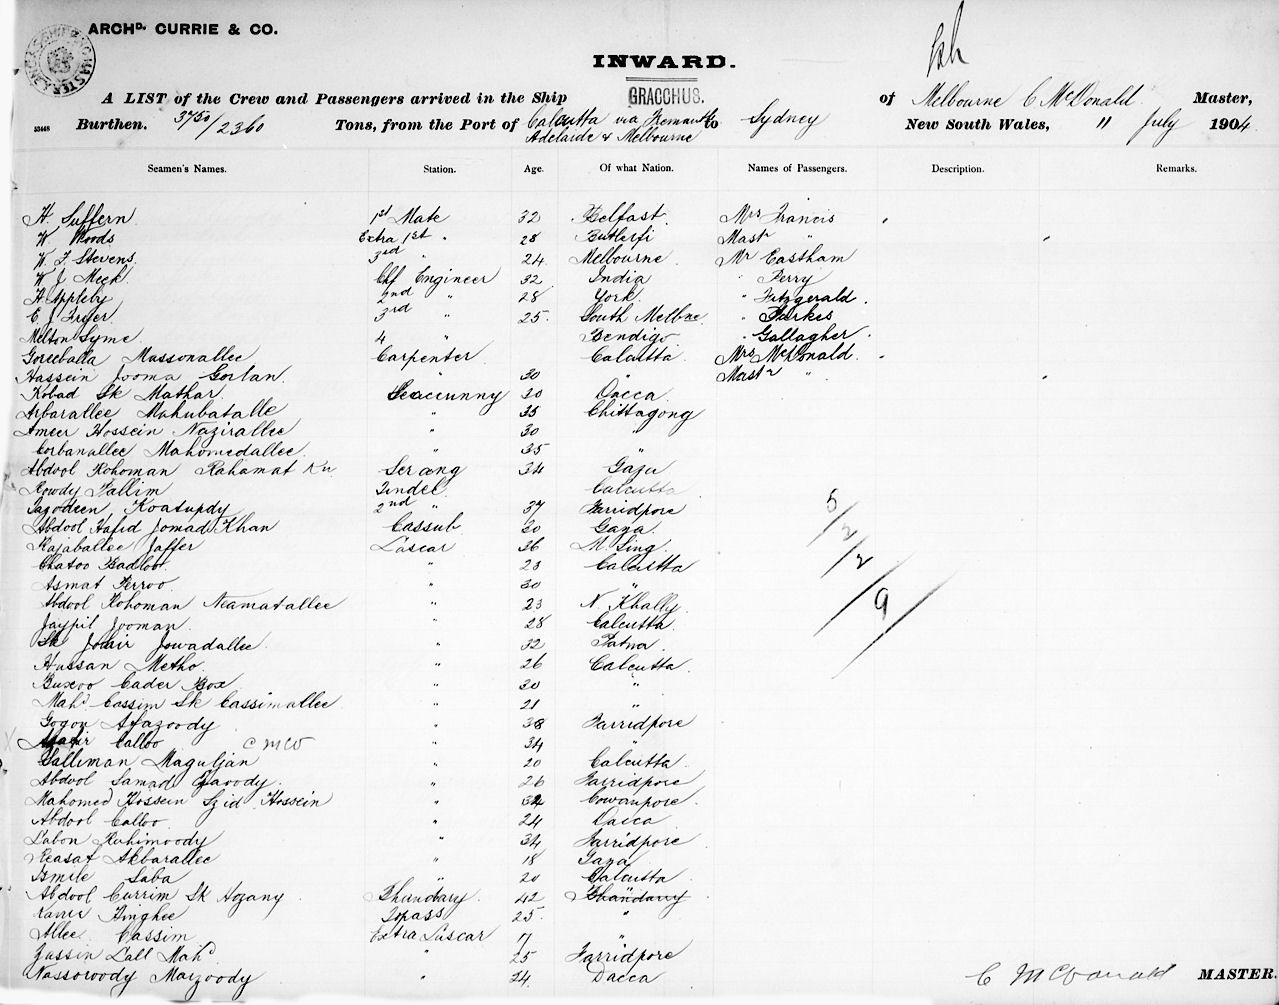 ARCHD. CURRIE & CO.
INWARD.
A LIST of the Crew and Passengers arrived in the Ship GRACCHUS. of Melbourne C McDonald Master,
53448 Burthen. 3750/2360 Tons, from the Port of Calcutta via Fremantle Adelaide & Melbourne to Sydney New South Wales, 11 July 1904.
Seamen's Names. Station. Age. Of what Nation. Names of Passengers. Description. Remarks.
H. Suffern 1st Mate 32 Belfast. Mrs Francis
W. Woods Extra 1st " 28 Mast "
W. F. Stevens 3rd " 24 Melbourne Mr Eastham
W J Meek Chf Engineer 32 India " Perry
H Appleby 2nd " 28 York " Fitzgerald.
E J Fryer 3rd " 25. South Melbne. " Parkes
Melton Syme 4 " Bendigo " Gallagher.
Goreeballa Massonallee Carpenter Calcutta Mrs McDonald.
Hassein Jooma Gorlan. " 30 " Mastr "
Kobad Sk Mathar. Seacunny 30 Dacca.
Akbarallee Mahubatalle " 35 Chittagong
Ameer Hossein Nazirallee " 30 "
Corbanallee Mahomedallee. " 35 "
Abdool Rohoman Rahamat Serang 34 Gaza
Rowdy Fallim Tindel Calcutta
Koasupdy 2nd " 37 Farridpore
Abdool Hafid Jomad Khan Cassub 30 Gaya.
Rajaballee Jaffer Lascar 36 M. Sing.
Chatoo Badloo. " 23 Calcutta
Asmat Ferroo. " 30 "
Abdool Rohoman Neamatallee " 23 N. Khally.
Jaypil Jooman. " 28 Calcutta.
Sk Jobair Jowadallee. " 32 Patna.
Hussan Metho. " 26 Calcutta.
Buxoo Cader Box " 30 "
Mahd Cassim Sk Cassimallee " 21 "
Gogon Afazoody " 38 Farridpore
Calloo CMcD " 34 "
Salliman Maguljan " 20 Calcutta.
Abdool Samad " 26 Farridpore
Mahomed Hossein Syid Hossein " 34 Cowanpore.
Abdool Calloo " 24 Dacca
Labon Rahimoody " 34 Farridpore
Reasat Akbarallee " 18 Gaya
Ismile Saba " 20 Calcutta
Abdool Currim Sk Hozany Bhandary. 42 Bhandary
Hinghee Topass 25. "
Allee Cassim Extra Lascar 17 "
Yassin Lall Mahd " 25 Farridpore
Nassoroody Maizoody " 24. Dacca
5/
2/
2
9
C McDonald MASTER.